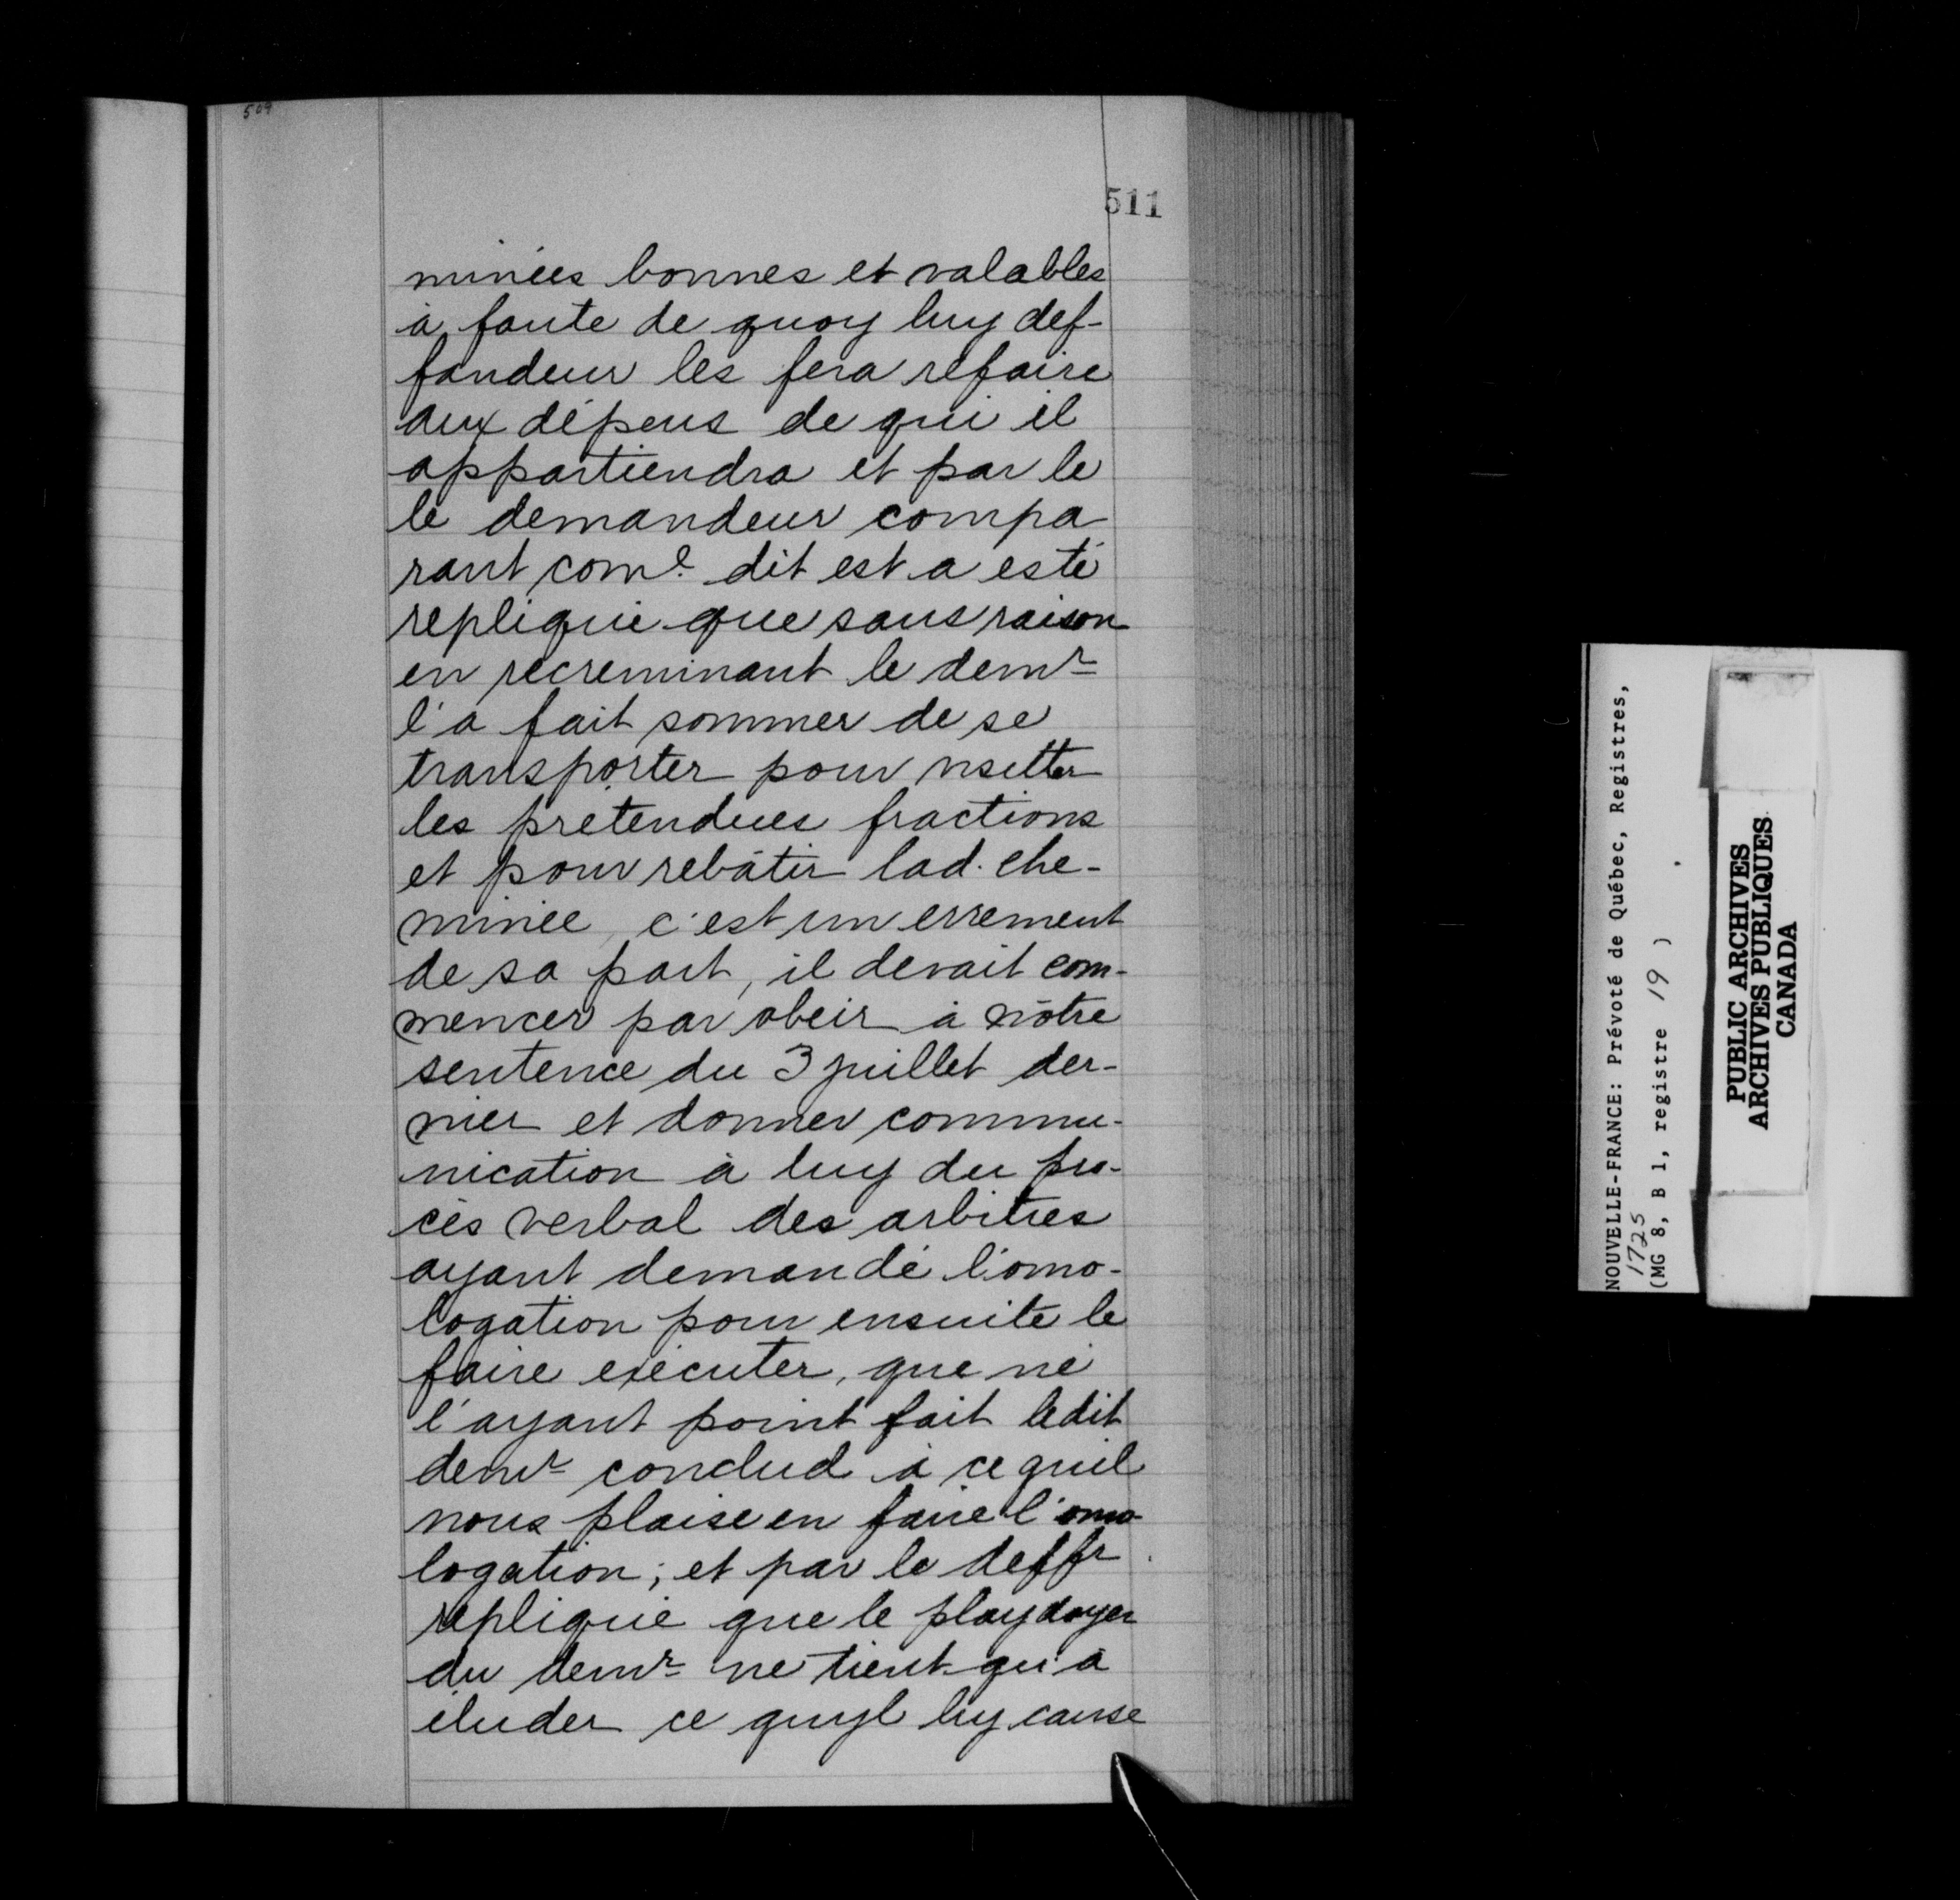 509
511
minées bonnes et valables
à faute de quoy luy def-
fandeur les fera refaire
aux dépens de qui il
appartiendra et par le
le demandeur compa
rant come. dit est a esté
repliqué que sans raison
en recreminant le demr
l'a fait sommer de se
transporter pour visetter
les pretendues fractions
et pour rebâtir lad. che-
minée, c'est un errement
de sa part, il devait com-
mencer par obeir à nôtre
sentence du 3 juillet der-
nier et donner commu-
nication à luy du pro-
cès verbal des arbitres
ayant demandé l'omo-
logation pour ensuite le
faire exécuter, que ne
l'ayant point fait ledit
demr conclud à ce quil
nous plaise en faire l'omo-
logation; et par le deffr
repliqué que le playdoyer
du demr ne tient qu'à
éluder ce quyl luy cause
NOUVELLE-FRANCE: Prévoté de Québec, Registres,
1725
(MG 8, B 1, registre 19 )
PUBLIC ARCHIVES
ARCHIVES PUBLIQUES
CANADA